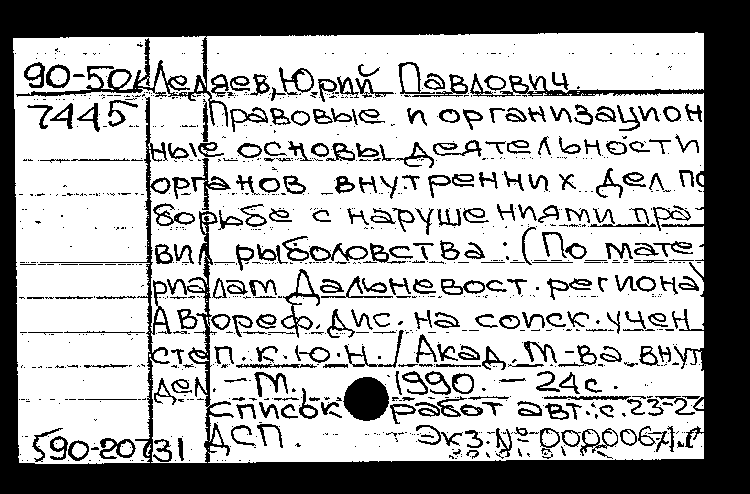 90-50к Ледяев, Юрий Павлович.
7445 Правовые и организацион
ные основы деятельности
органов внутренних дел по
борьбе с нарушениями пра-
вил рыболовства : (По мате-
риалам Дальневост. региона)
Автореф. дис. на соиск. учен.
степ. к. ю. н. / Акад. М-ва внут
дел. - М., 1990. - 24 с.
список работ авт.: с. 23-24
590-20731 ДСП. Экз. №